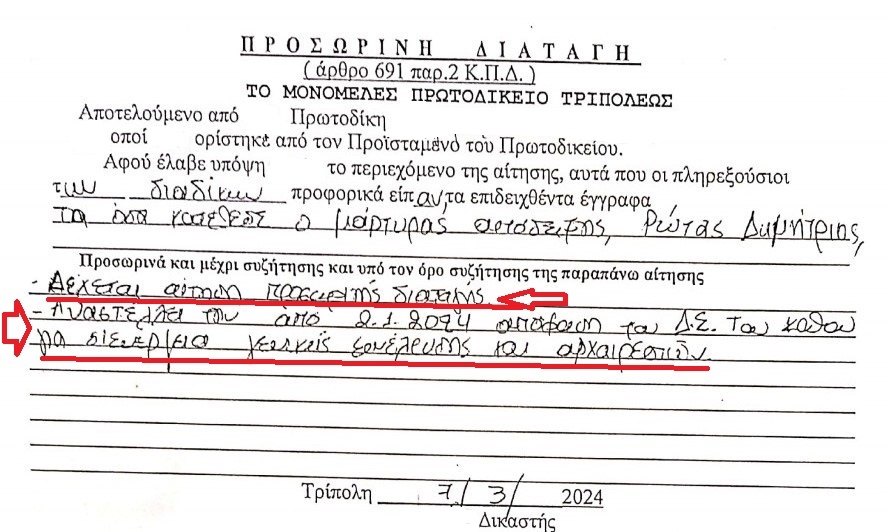 ΠΡΟΣΩΡΙΝΗ ΔΙΑΤΑΓΗ
( άρθρο 691 παρ.2 Κ.Π.Δ. )
ΤΟ ΜΟΝΟΜΕΛΕΣ ΠΡΩΤΟΔΙΚΕΙΟ ΤΡΙΠΟΛΕΩΣ
Αποτελούμενο από Πρωτοδίκη
οποί ορίστηκε από τον Προϊσταμένο του Πρωτοδικείου.
Αφού έλαβε υπόψη το περιεχόμενο της αίτησης, αυτά που οι πληρεξούσιοι
των διαδίκων προφορικά είπαν, τα επιδειχθέντα έγγραφα
τα όσα κατέθεσε ο μάρτυρας απόδειξης, Ρώτας Δημήτριος,
Προσωρινά και μέχρι συζήτησης και υπό τον όρο συζήτησης της παραπάνω αίτησης
- Δέχεται αίτηση προσωρινής διαταγής
- Αναστέλλει την από 2.1.2024 απόφαση του Δ.Σ. του καθου
για διενέργεια γενικής συνέλευσης και αρχαιρεσιών
Τρίπολη 7/3/ 2024
Δικαστής